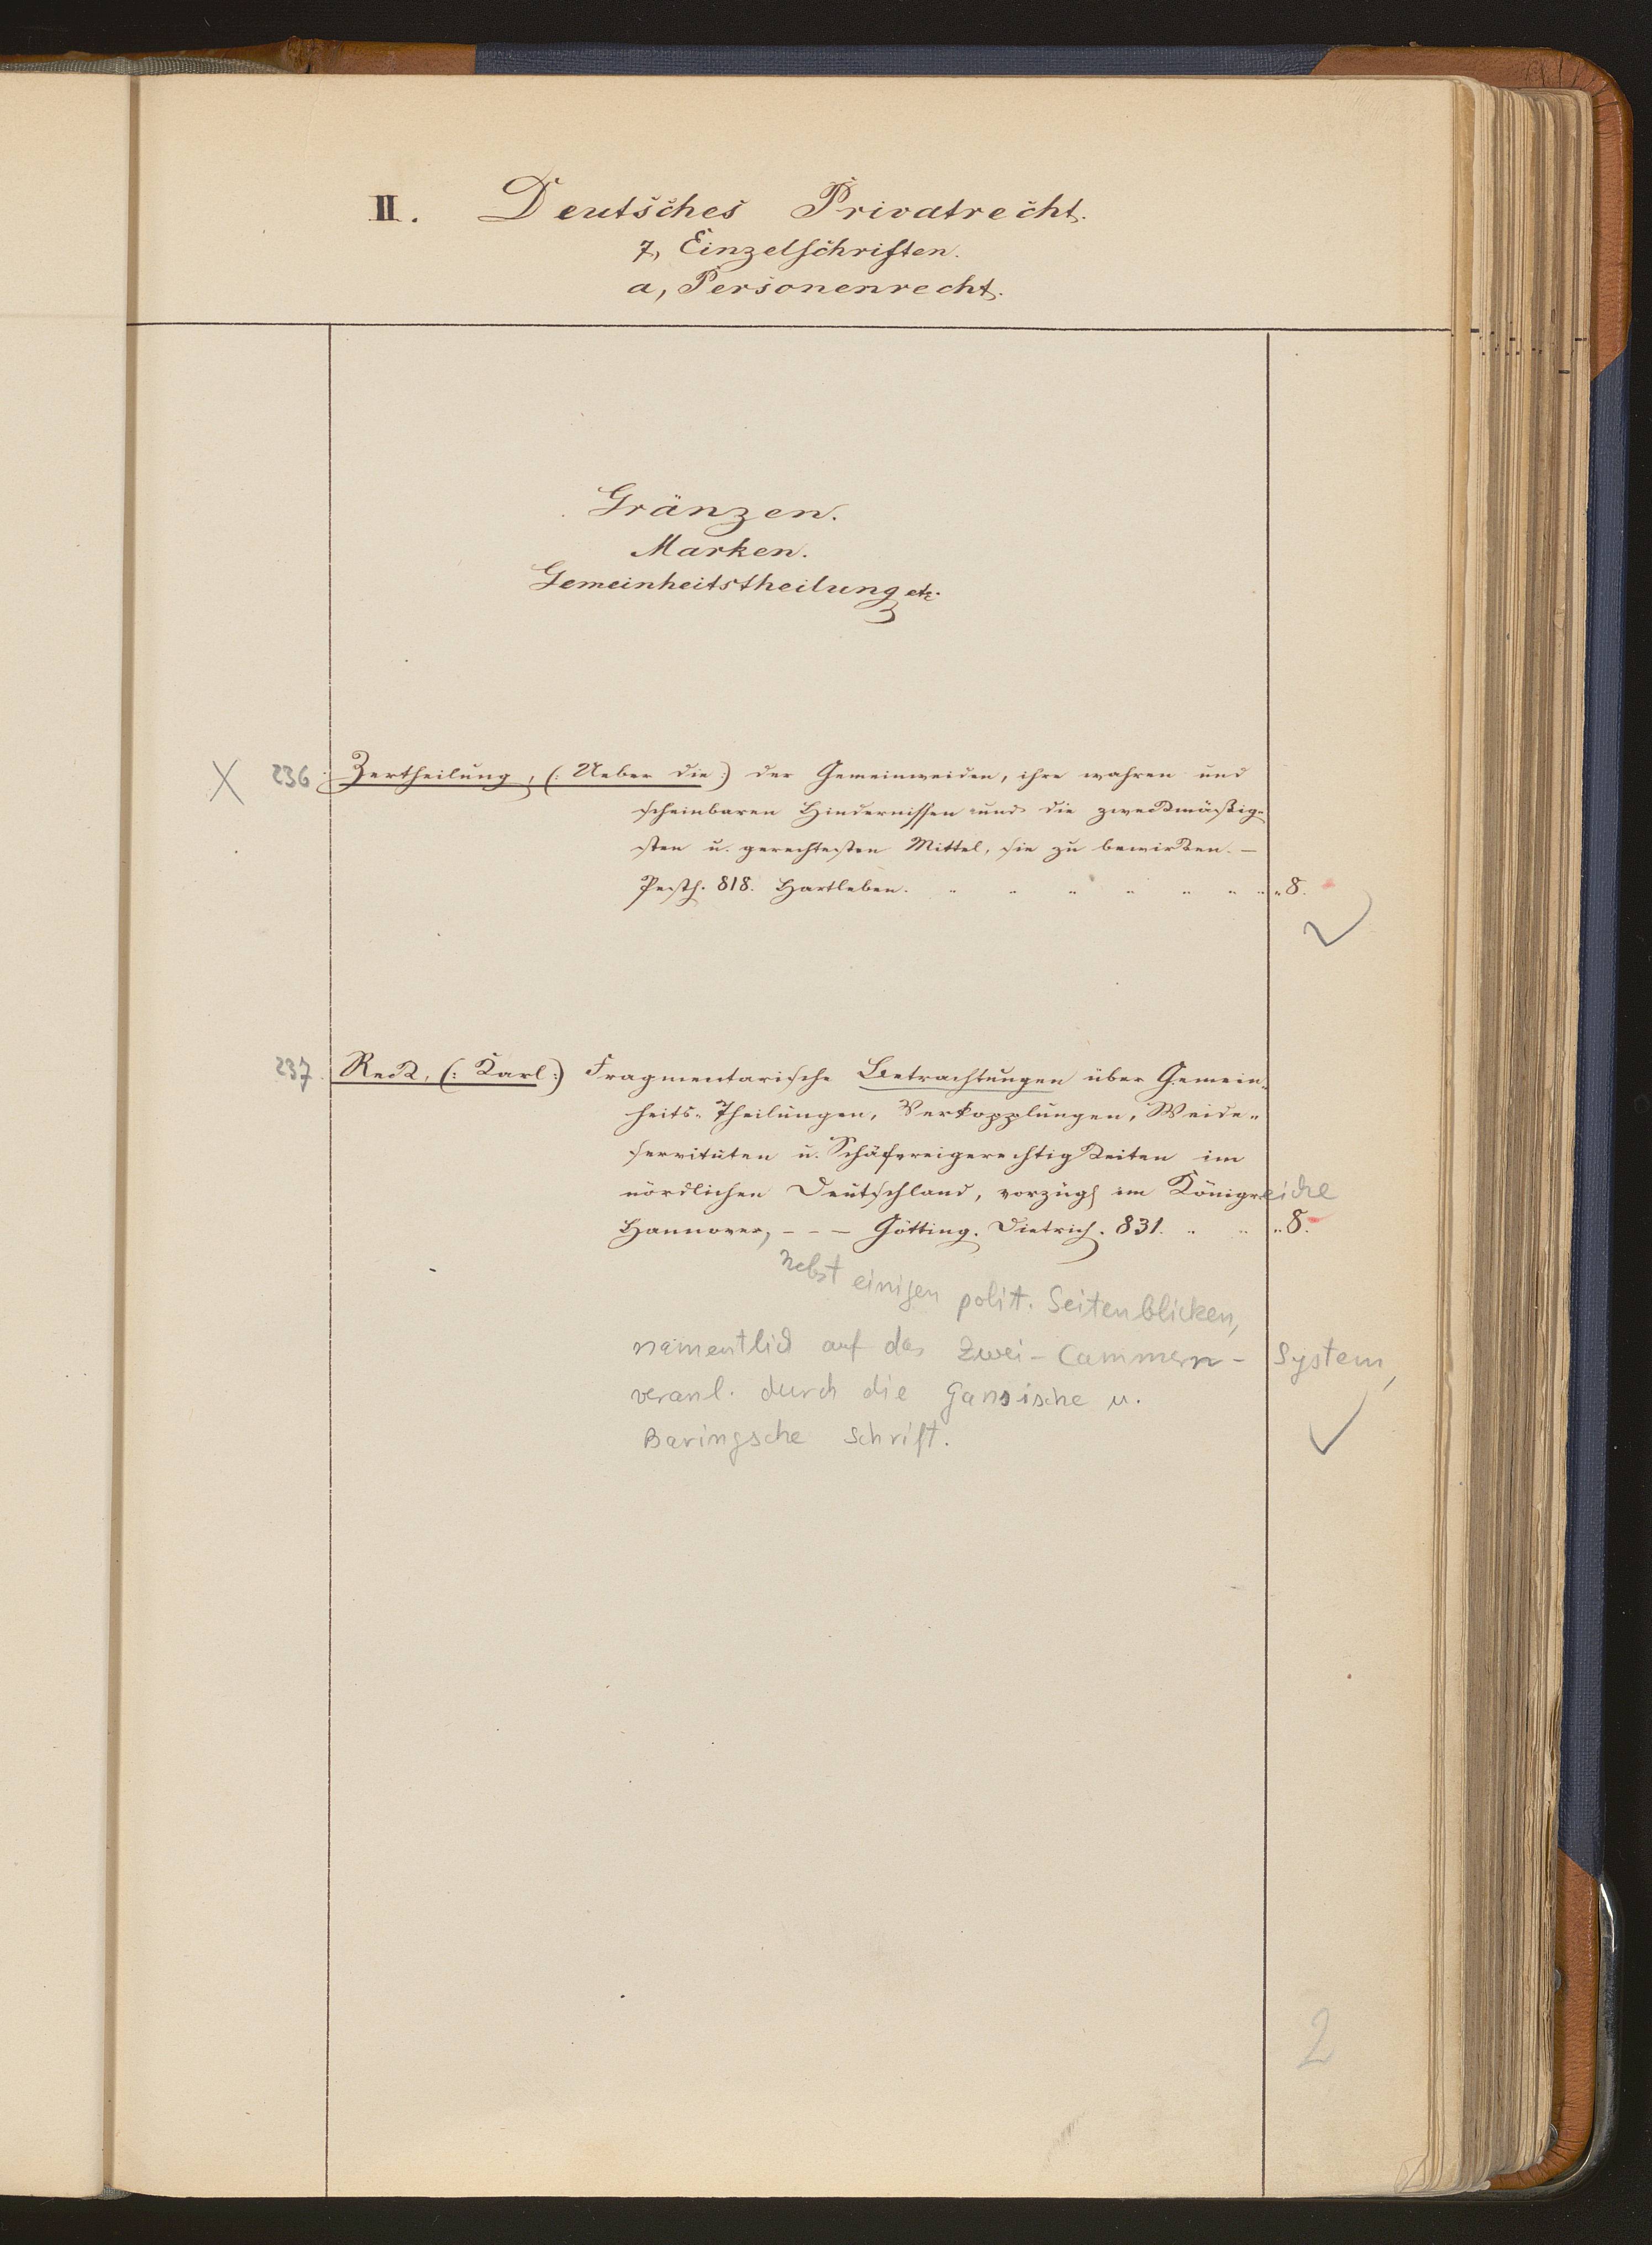 II. Deutsches Privatrecht.
7, Einzelschriften.
a, Personenrecht.
Gränzen.
Marken.
Gemeinheitstheilung etc.
X 236. Zertheilung, (: Ueber die :) der Gemeinweiden, ihre wahren und
scheinbaren Hindernissen und die zweckmäßig-
sten u. gerechtesten Mittel, sie zu bewirken. —
Pesth. 818. Hartleben. " " " " " " " " 8.
237. Reck, (: Karl :) Fragmentarische Betrachtungen über Gemein-
heits-Theilungen, Verkopplungen, Weide-
servituten u. Schäfereigerechtigkeiten im
nördlichen Deutschland, vorzügl im Königreiche
Hannover, - - - Götting. Dietrich. 831. " " " 8.
nebst einigen polit. Seitenblicken,
namentlich auf das Zwei-Cammern-System,
veranl. durch die Gansische u.
Baringsche Schrift.
2